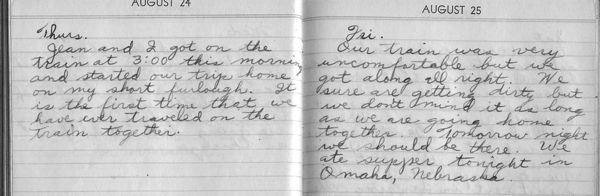 AUGUST 24
Thurs.
Jean and I got on the
train at 3:00 this morning
and started our trip home
on my short furlough. It
is the first time that we
have ever traveled on the
train together.
AUGUST 25
Fri.
Our train was very
uncomfortable but we
got along all right. We
sure are getting dirty but
we don't mind it as long
as we are going home
together. Tomorrow night
we should be there. We
ate supper tonight in
Omaha, Nebraska.